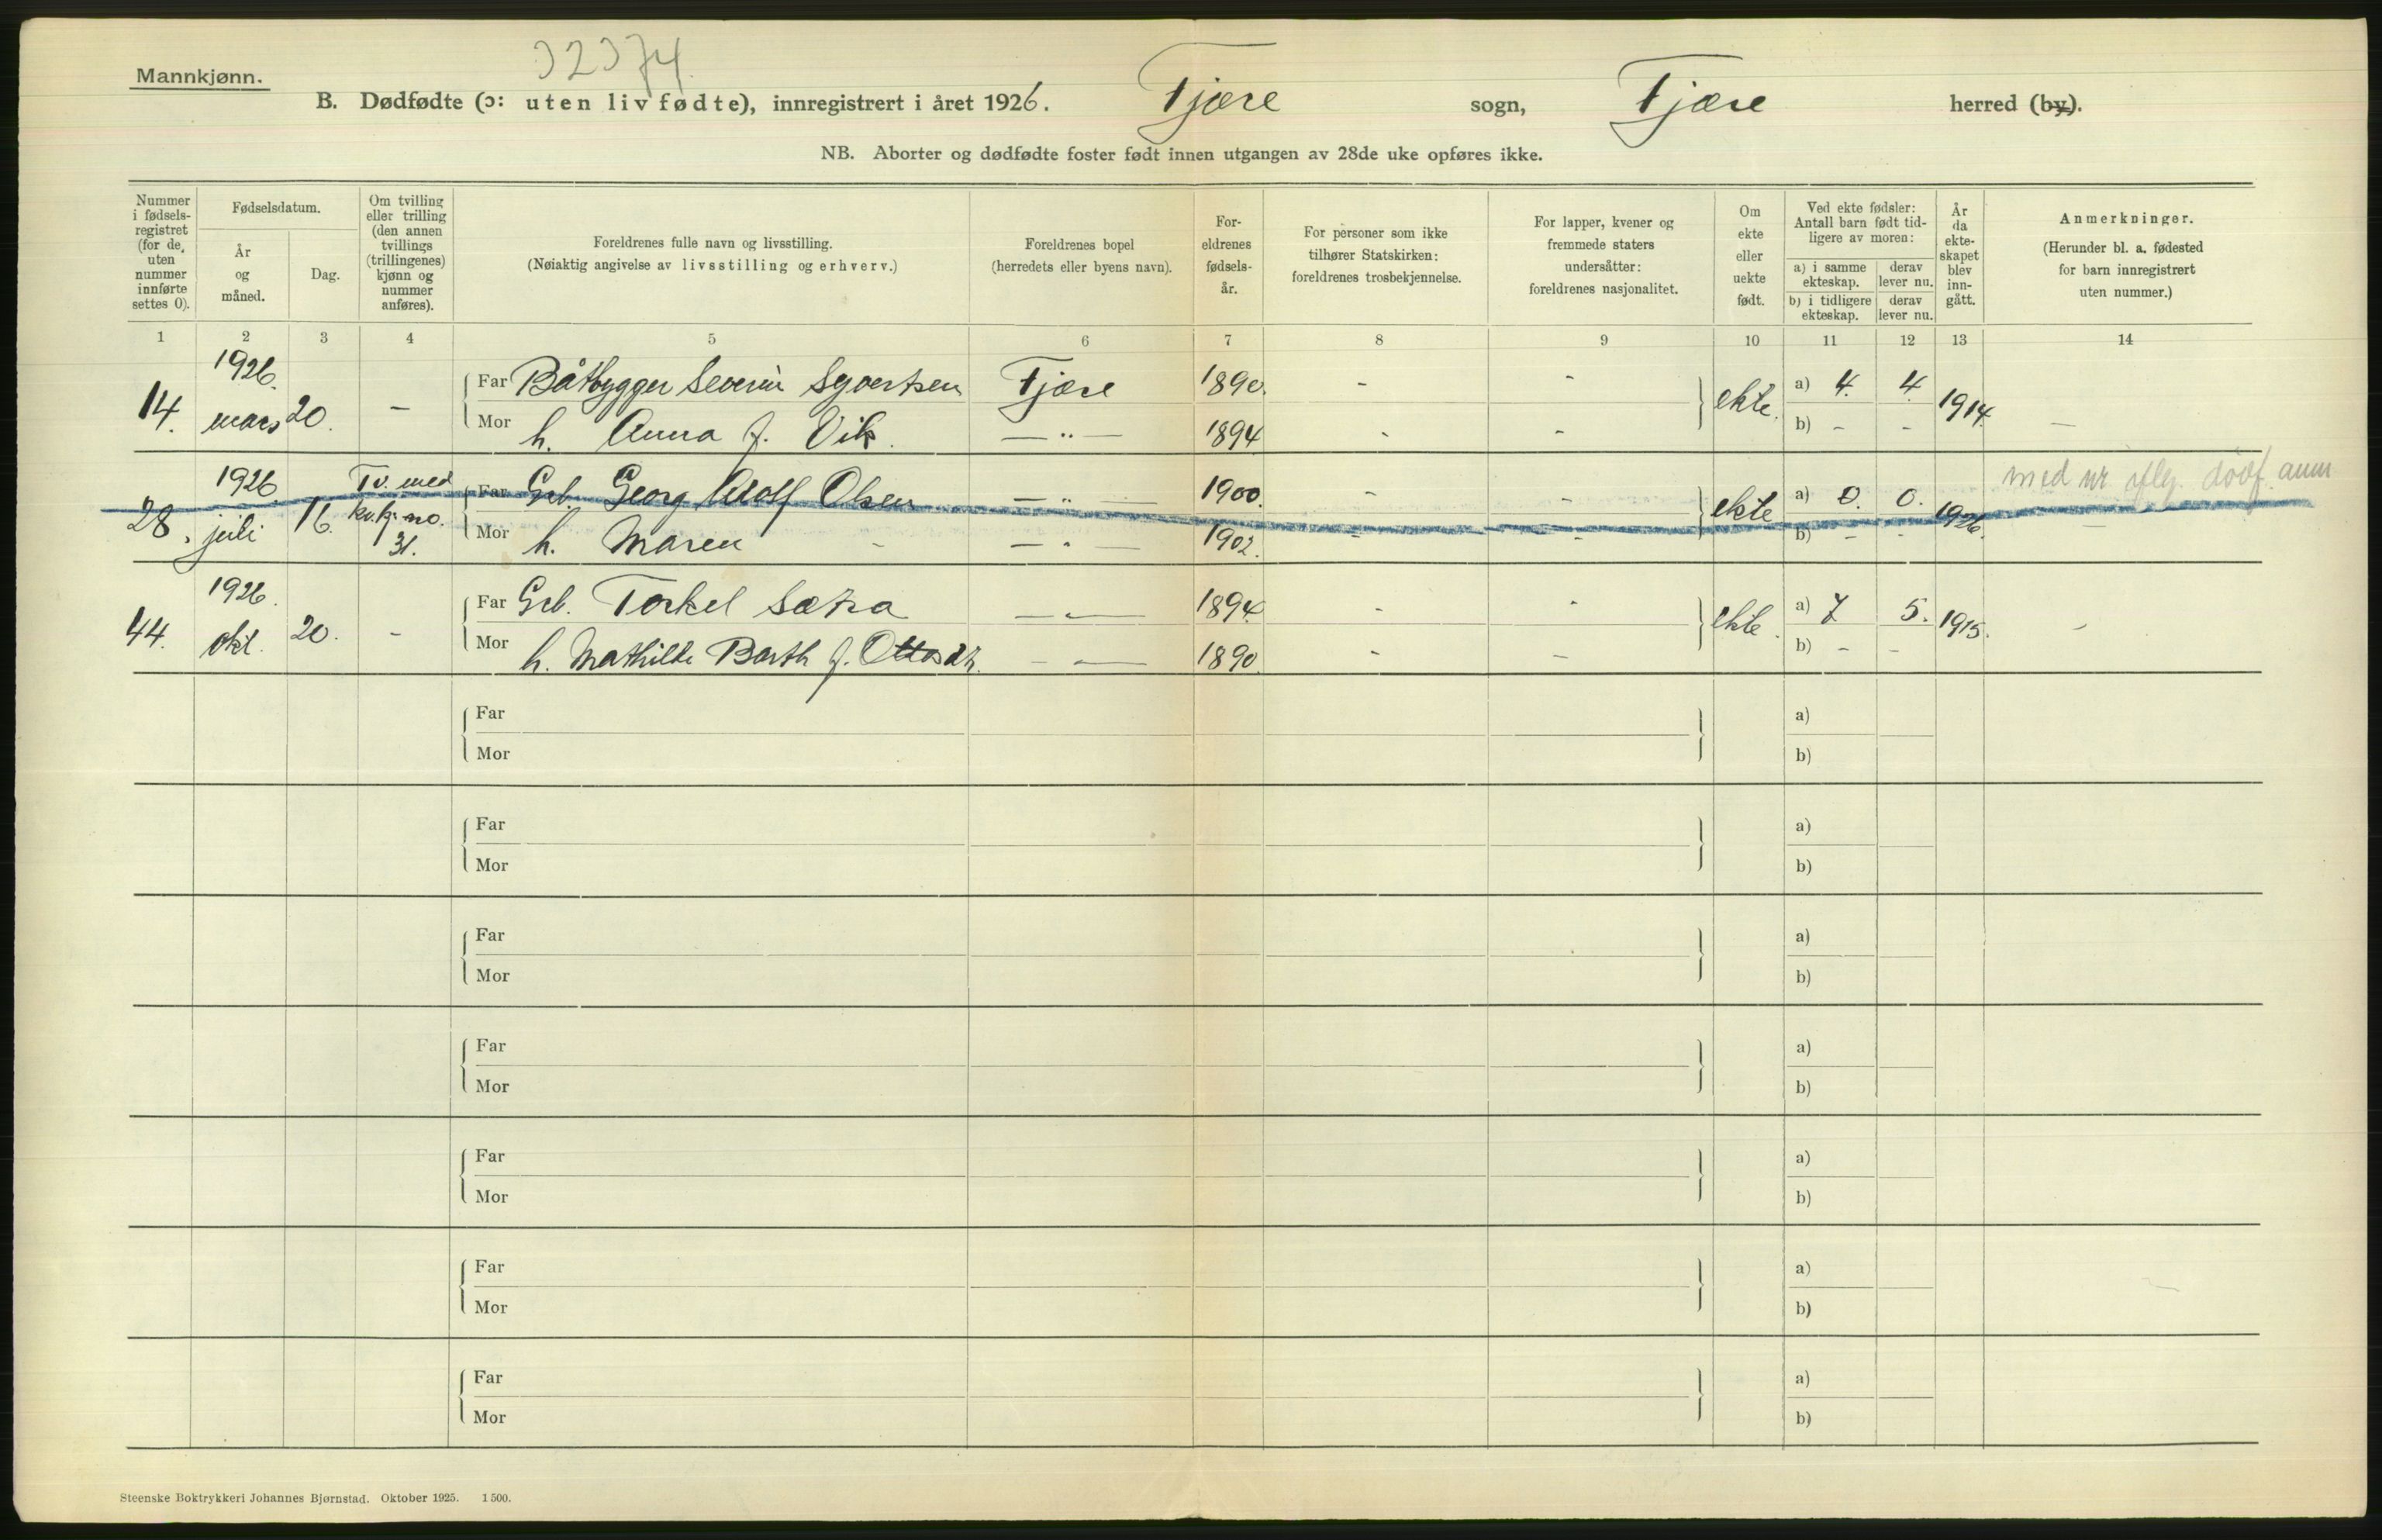 32374
Mannkjønn.
B. Dødfødte (ɔ: uten liv fødte), innregistrert i året 1926. Fjære sogn, Fjære herred (by).
NB. Aborter og dødfødte foster født innen utgangen av 28de uke opføres ikke.
Nummer i fødsels-registret (for de uten nummer innførte settes 0).
Fødselsdatum.
År og måned.
Dag.
Om tvilling eller trilling (den annen tvillings (trillingenes) kjønn og nummer anføres).
Foreldrenes fulle navn og livsstilling.
(Nøiaktig angivelse av livsstilling og erhverv.)
Foreldrenes bopel
(herredets eller byens navn).
For-eldrenes fødsels-år.
For personer som ikke tilhører Statskirken: foreldrenes trosbekjennelse.
For lapper, kvener og fremmede staters undersåtter: foreldrenes nasjonalitet.
Om ekte eller uekte født.
Ved ekte fødsler: Antall barn født tid-ligere av moren:
a) i samme ekteskap. derav lever nu.
b) i tidligere ekteskap. derav lever nu.
År da ekte-skapet blev inn-gått.
Anmerkninger.
(Herunder bl. a. fødested for barn innregistrert uten nummer.)
1 2 3 4 5 6 7 8 9 10 11 12 13 14
14. 1926. mars 20. - Far Båtbygger Severin Syvertsen Fjære 1890. - - ekte. a) 4. 4. 1914.
Mor h. Anna f. Vik. — " — 1894 - - b) - - —
28. 1926 juli 16. Tv. med kv.kj. no. 31. Far Grb. Georg Adolf Olsen — " — 1900. - - ekte a) 0. 0. 1926. med nr dødf. anm
Mor h. Maren - — " — 1902. - - b) - - -
44. 1926. okt. 20. - Far Grb. Torkel Sætra — " — 1894. - - ekte. a) 7 5. 1915. -
Mor h. Mathilde Barth f. Ottosdt. — " — 1890. - - b) - -
Far a)
Mor b)
Far a)
Mor b)
Far a)
Mor b)
Far a)
Mor b)
Far a)
Mor b)
Far a)
Mor b)
Far a)
Mor b)
Steenske Boktrykkeri Johannes Bjørnstad. Oktober 1925. 1500.